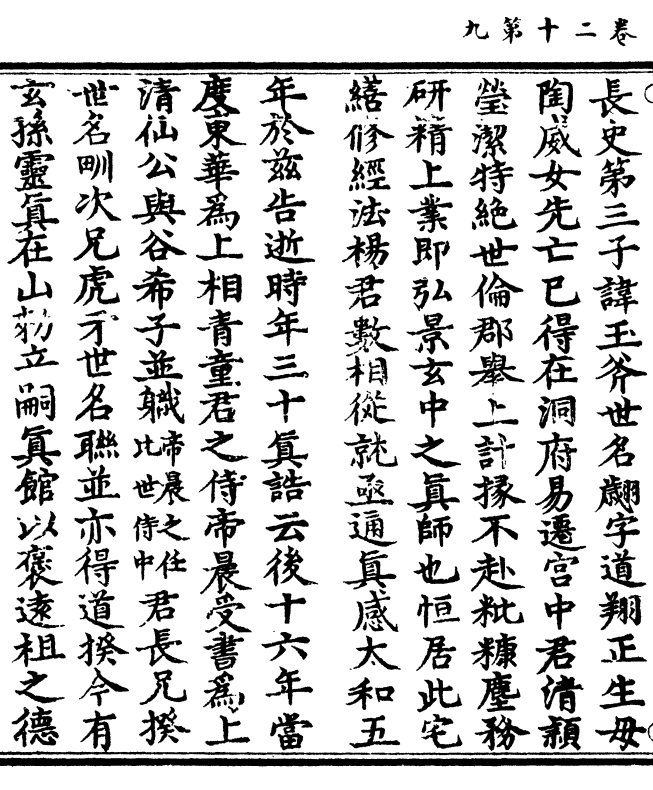 卷二十第九
長史第三子諱玉斧世名翽字道翔正生母
陶威女先亡已得在洞府易遷宮中君清穎
瑩潔特絶世倫郡舉上計掾不赴粃糠塵務
研精上業即弘景玄中之真師也恒居此宅
繕修經法楊君數相從就亟通真感太和五
年於茲告逝時年三十真誥云後十六年當
度東華為上相青童君之侍帝晨受書為上
清仙公與谷希子並職帝晨之任比世侍中君長兄揆
世名甽次兄虎牙世名聯並亦得道揆今有
玄孫靈真在山勑立嗣真館以褒遠祖之德